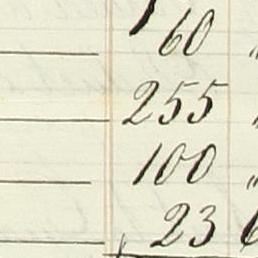 60 "
255 "
100 "
23 6